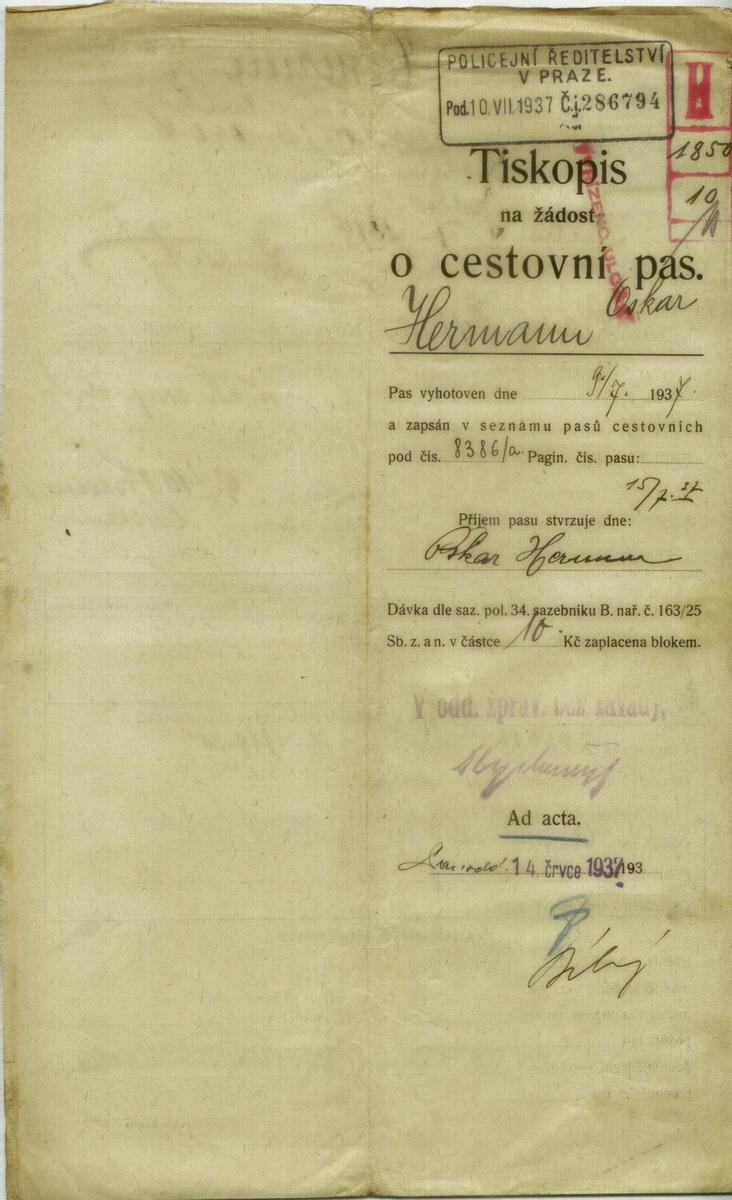 POLICEJNÍ ŘEDITELSTVÍ
V PRAZE.
Pod. 10. VII. 1937 Č.j. 286794
H
1850
10
Tiskopis
na žádost
o cestovní pas.
Oskar
Hermann
Pas vyhotoven dne 9./7. 1937.
a zapsán v seznamu pasů cestovních
pod čís. 8386/a. Pagin. čís. pasu:
15/7. 37
Příjem pasu stvrzuje dne:
Oskar Hermann
Dávka dle saz. pol. 34. sazebníku B. nař. č. 163/25
Sb. z. a n. v částce 10 Kč zaplacena blokem.
V odd. zpráv. bez závady.
Ad acta.
14. črvce 1937 193